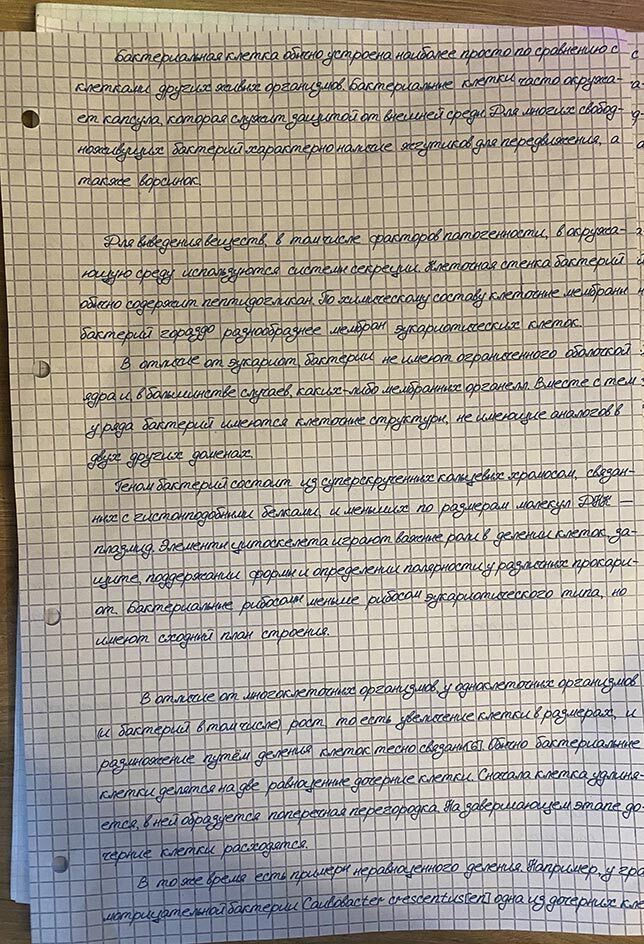 Бактериальная клетка обычно устроена наиболее просто по сравнению с
клетками других живых организмов. Бактериальные клетки часто окружа-
ет капсула, которая служит защитой от внешней среды. Для многих свобод-
ноживущих бактерий характерно наличие жгутиков для передвижения, а
также ворсинок.
Для выведения веществ, в том числе факторов патогенности, в окружа-
ющую среду используются системы секреции. Клеточная стенка бактерий
обычно содержит пептидогликан. По химическому составу клеточные мембраны
бактерий гораздо разнообразнее мембран эукариотических клеток.
В отличие от эукариот, бактерии не имеют ограниченного оболочкой
ядра и, в большинстве случаев, каких-либо мембранных органелл. Вместе с тем
у ряда бактерий имеются клеточные структуры, не имеющие аналогов в
двух других доменах.
Геном бактерий состоит из суперскрученных кольцевых хромосом, связан-
ных с гистонподобными белками, и меньших по размерам молекул ДНК —
плазмид. Элементы цитоскелета играют важные роли в делении клеток, за-
щите, поддержании формы и определении полярности у различных прокари-
от. Бактериальные рибосомы меньше рибосом эукариотического типа, но
имеют сходный план строения.
В отличие от многоклеточных организмов, у одноклеточных организмов
(и бактерий в том числе) рост, то есть увеличение клетки в размерах, и
размножение путём деления клеток тесно связаны[6]. Обычно бактериальные
клетки делятся на две равноценные дочерние клетки. Сначала клетка удлиня-
ется, в ней образуется поперечная перегородка. На завершающем этапе до-
черние клетки расходятся.
В то же время есть примеры неравноценного деления. Например, у гра
мотрицательной бактерии Caulobacter crescentus[en] одна из дочерних кле